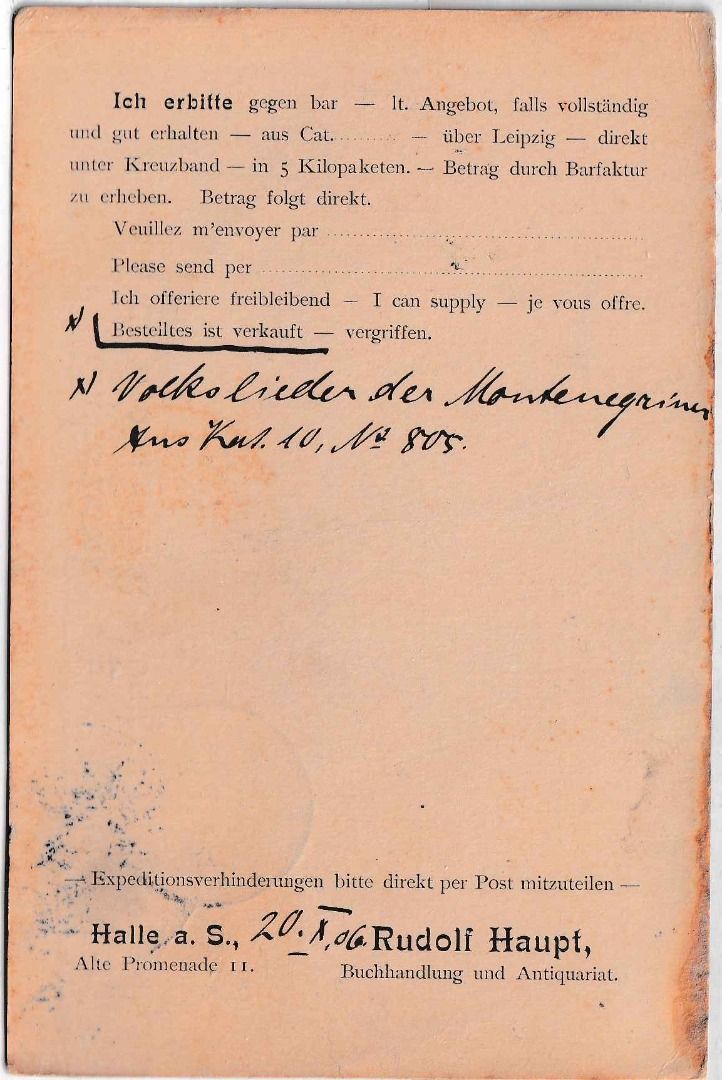 Ich erbitte gegen bar — lt. Angebot, falls vollständig
und gut erhalten — aus Cat. .......... — über Leipzig — direkt
unter Kreuzband — in 5 Kilopaketen. — Betrag durch Barfaktur
zu erheben. Betrag folgt direkt.
Veuillez m'envoyer par ..........
Please send per ..........
Ich offeriere freibleibend — I can supply — je vous offre.
x) Bestelltes ist verkauft — vergriffen.
x) Volkslieder der Montenegriner
Aus Kat. 10, No 805.
— Expeditionsverhinderungen bitte direkt per Post mitzuteilen —
Halle a. S., 20. X. 06. Rudolf Haupt,
Alte Promenade 11. Buchhandlung und Antiquariat.